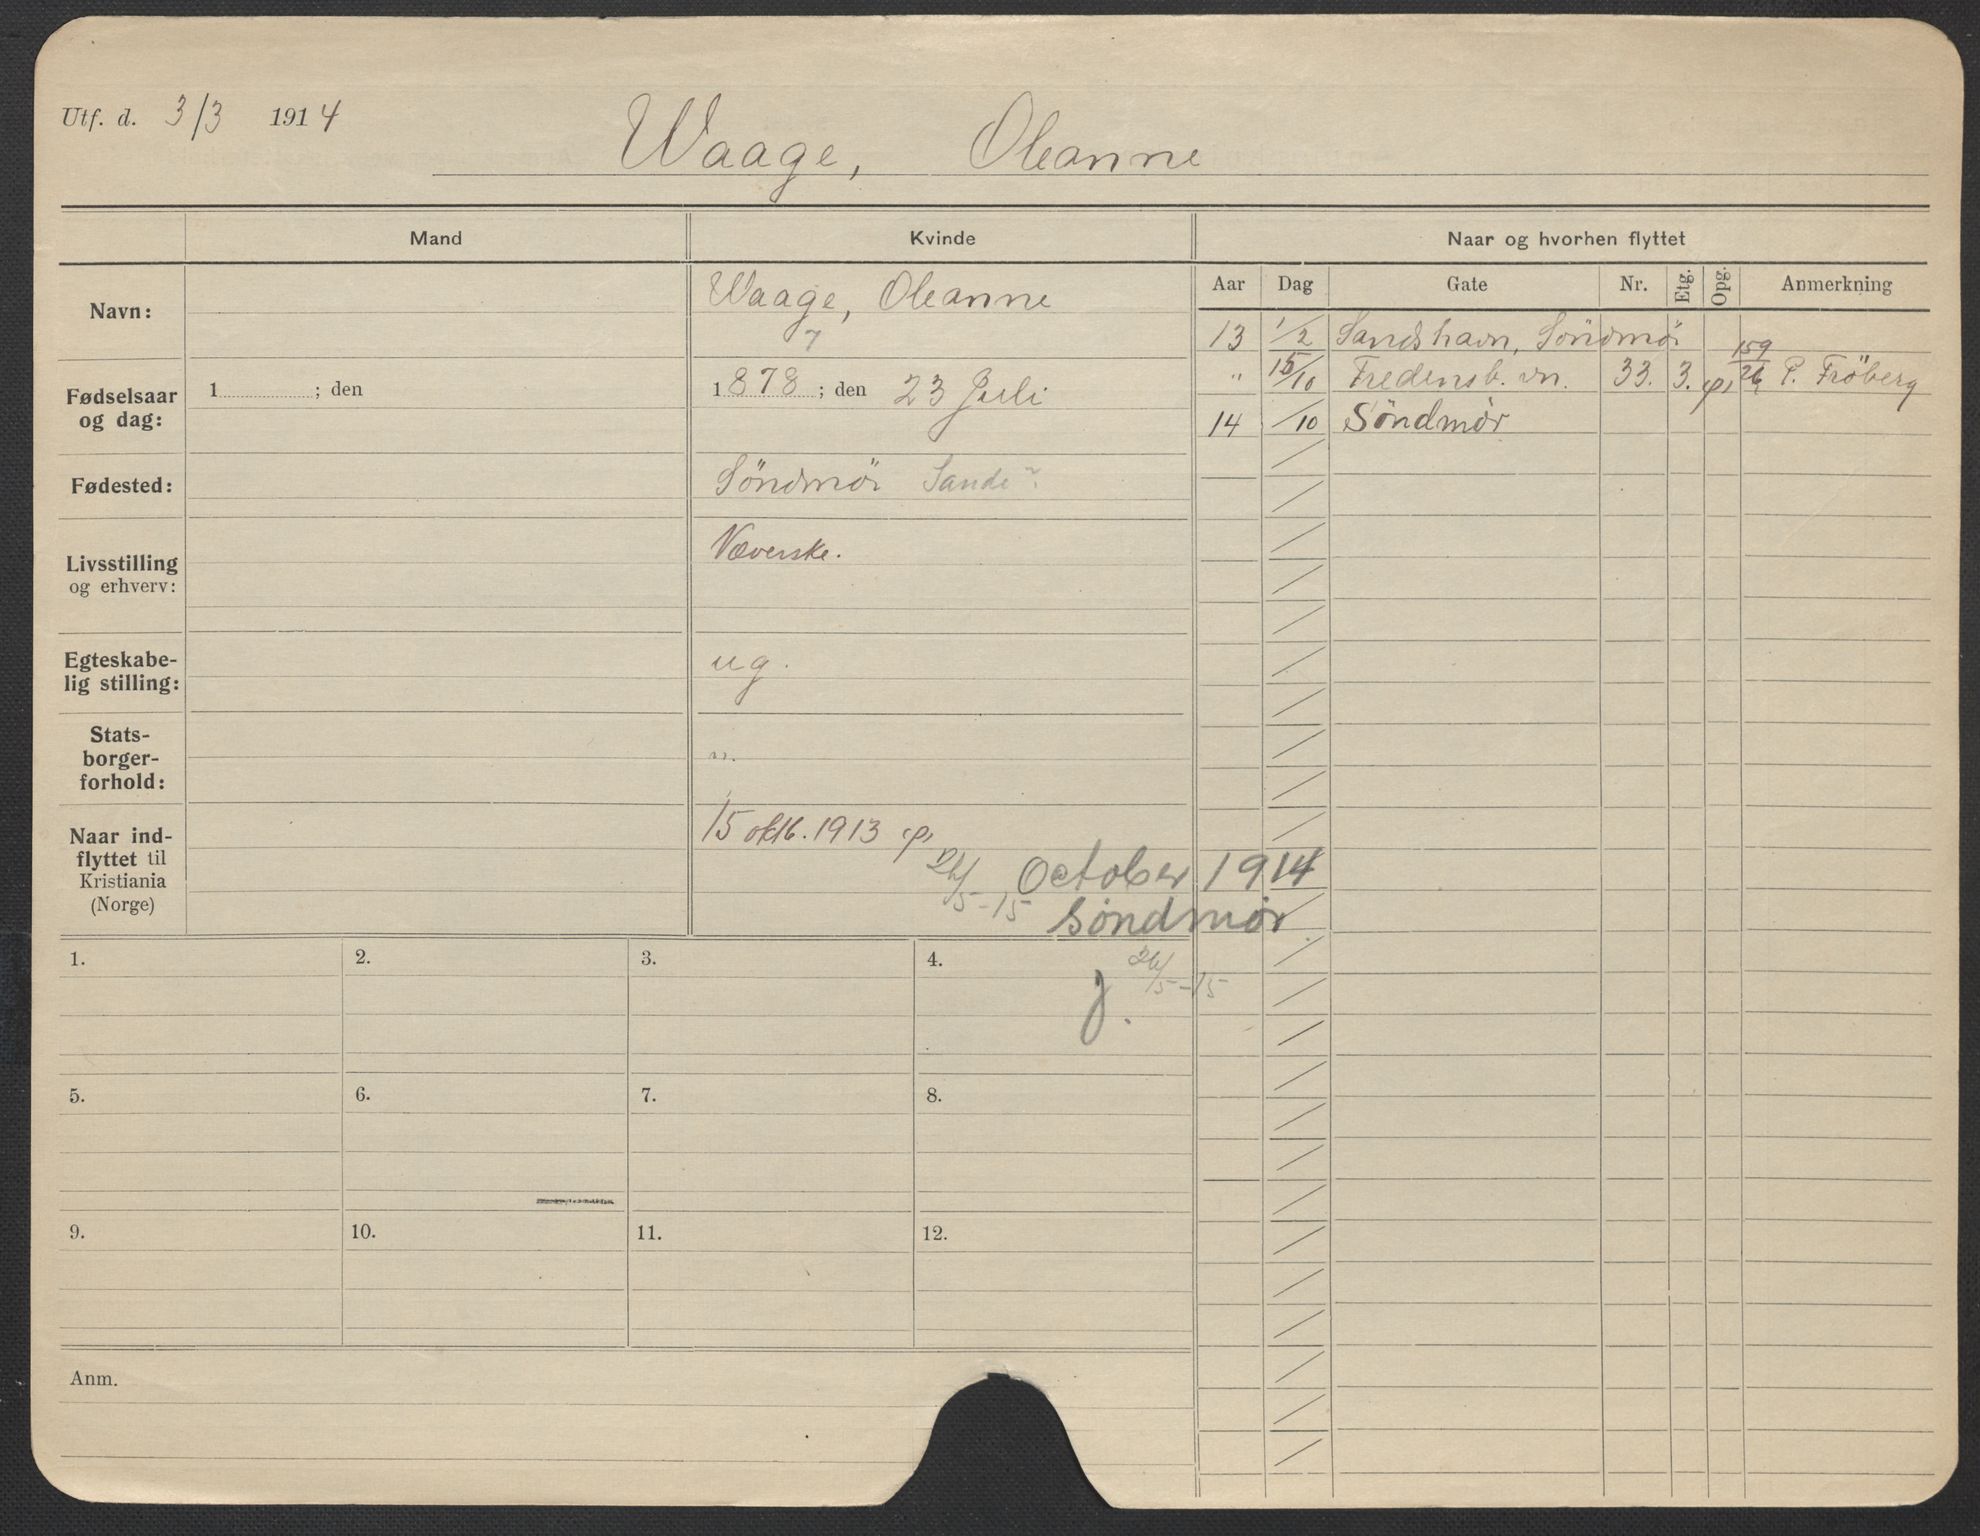 Utf. d. 3/3 1914
Waage, Oleanne
Mand
Kvinde
Naar og hvorhen flyttet
Aar Dag Gate Nr. Etg. Opg. Anmerkning
Navn:
Waage, Oleanne
7
Fødselsaar og dag:
1 ; den
1878 ; den 23 Juli
Fødested:
Söndmör Sande ?
Livsstilling og erhverv:
Væverske.
Egteskabelig stilling:
ug.
Statsborgerforhold:
n.
Naar indflyttet til Kristiania (Norge)
15 oktb. 1913
26/5-15 October 1914
Söndmør
26/5-15
13 1/2 Sandshavn, Söndmör
" 15/10 Fredensb. vn. 33. 3. 159/26 P. Fröberg
14 /10 Söndmör
1. 2. 3. 4.
5. 6. 7. 8.
9. 10. 11. 12.
Anm.